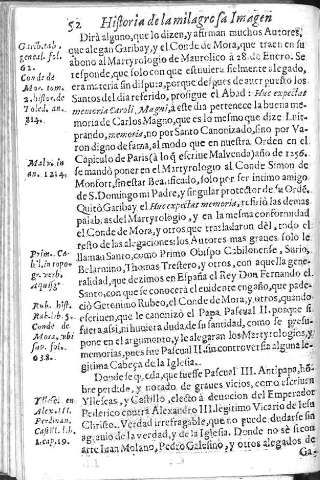 52 Historia de la milagrosa Imagen
Dirà alguno, que lo dizen, y afirman muchos Autores,
que alegan Garibay, y el Conde de Mora, que traen en su
abono al Martyrologio de Maurolico à 28. de Enero. Se
responde, que solo con que estuviera fielmente alegado,
era materia sin disputa, porque despues de aver puesto los
Santos del dia referido, prosigue el Abad: Huc expectat
memoria Caroli Magni, à este dia pertenece la buena me-
moria de Carlos Magno, que es lo mesmo que dize Luit-
prando, memoria, no por Santo Canonizado, sino por Va-
ron digno de fama, al modo que en nuestra Orden en el
Capitulo de Paris (à lo q̃ escrive Malvenda) año de 1256.
se mandò poner en el Martyrologio al Conde Simon de
Monfort, sin estar Beatificado, solo por ser intimo amigo
de S. Domingo mi Padre, y singular protector de su Ordẽ.
Quitò Garibay el Huc expectat memoria, refiriò las demas
palabras del Martyrologio, y en la mesma conformidad
el Conde de Mora, y otros que trasladaron dèl, todo el
resto de las alegaciones: los Autores mas graves solo le
llaman Santo, como Primo Obispo Cabilonense, Surio,
Belarmino, Thomas Trestero, y otros, con aquella gene-
ralidad, que dezimos en España el Rey Don Fernando el
Santo, con que se conocerà el evidente engaño, que pade-
ciò Geronimo Rubeo, el Conde de Mora, y otros, quando
escriven, que le canonizò el Papa Pasqual II. porque si
fuera assi, ni huviera duda de su santidad, como se presu-
pone en el argumento, y le alegaran los Martyrologios, y
memorias, pues fue Pasqual II. sin controversia alguna le-
gitima Cabeça de la Iglesia.
Donde se queda, que fuesse Pasqual III. Antipapa, hõ-
bre perdido, y notado de graves vicios, como escriven
Yllescas, y Castillo, electo à devocion del Emperador
Federico contra Alexandro III. legitimo Vicario de Iesu
Christo. Verdad irrefragable, que no puede dudarse sin
agravio de la verdad, y de la Iglesia. Donde no sè sicon
arte Iuan Molano, Pedro Galesino, y otros alegados de
Ga-
Garib. tab.
general. fol.
62.
Conde de
Mor. tom.
2. histor. de
Toled. an.
814.
Malv. in
an. 1214.
Prim. Ca-
bil. in topo-
gr. verb.
Aquisg.
Rub. hist.
Rab. lib. 5.
Conde de
Mora, ubi
sup. fol.
638.
Yllesc. en
Alex. III.
Ferdinan.
Castill. l. b.
1. cap. 19.